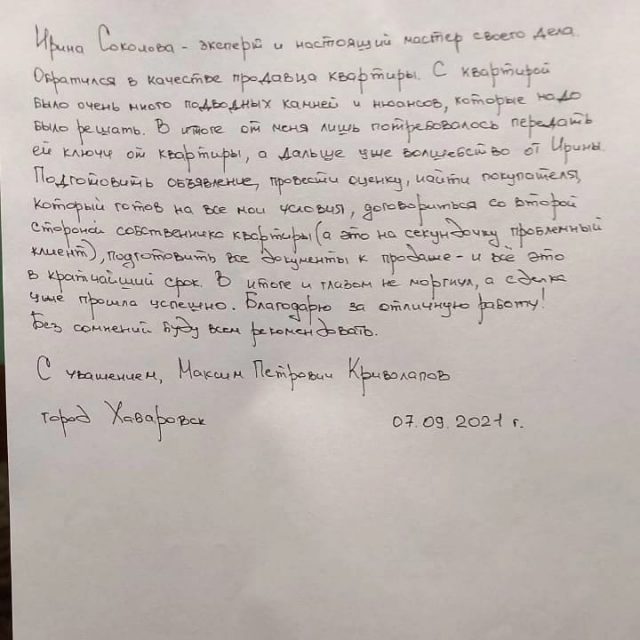 Ирина Соколова - эксперт и настоящий мастер своего дела.
Обратился в качестве продавца квартиры. С квартирой
было очень много подводных камней и нюансов, которые надо
было решать. В итоге от меня лишь потребовалось передать
ей ключи от квартиры, а дальше уже волшебство от Ирины.
Подготовить объявление, провести оценку, найти покупателя,
который готов на все мои условия, договориться со второй
стороной собственника квартиры (а это на секундочку проблемный
клиент), подготовить все документы к продаже - и всё это
в кратчайший срок. В итоге и глазом не моргнул, а сделка
уже прошла успешно. Благодарю за отличную работу!
Без сомнений буду всем рекомендовать.
С уважением, Максим Петрович Криволапов
город Хабаровск 07.09.2021 г.